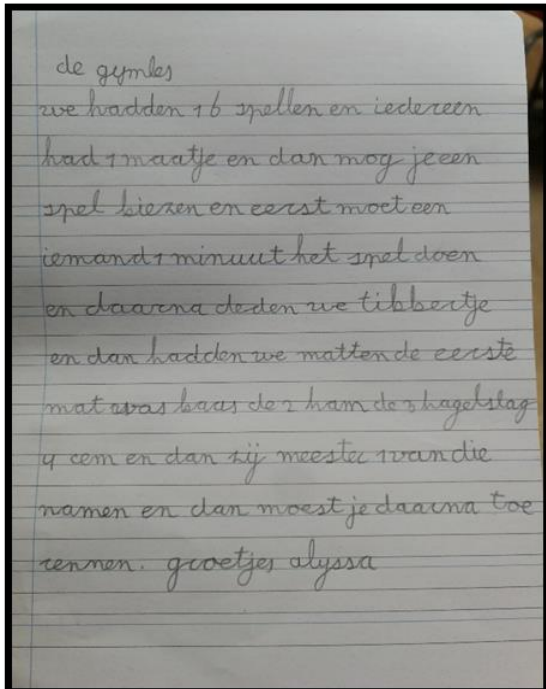 de gymles
we hadden 16 spellen en iedereen
had 1 maatje en dan mog je een
spel kiezen en eerst moet een
iemand 1 minuut het spel doen
en daarna deden we tikkertje
en dan hadden we matten de eerste
mat was kaas de 2 ham de 3 hagelslag
4 cem en dan zij meester 1 van die
namen en dan moest je daarna toe
rennen. groetjes alyssa